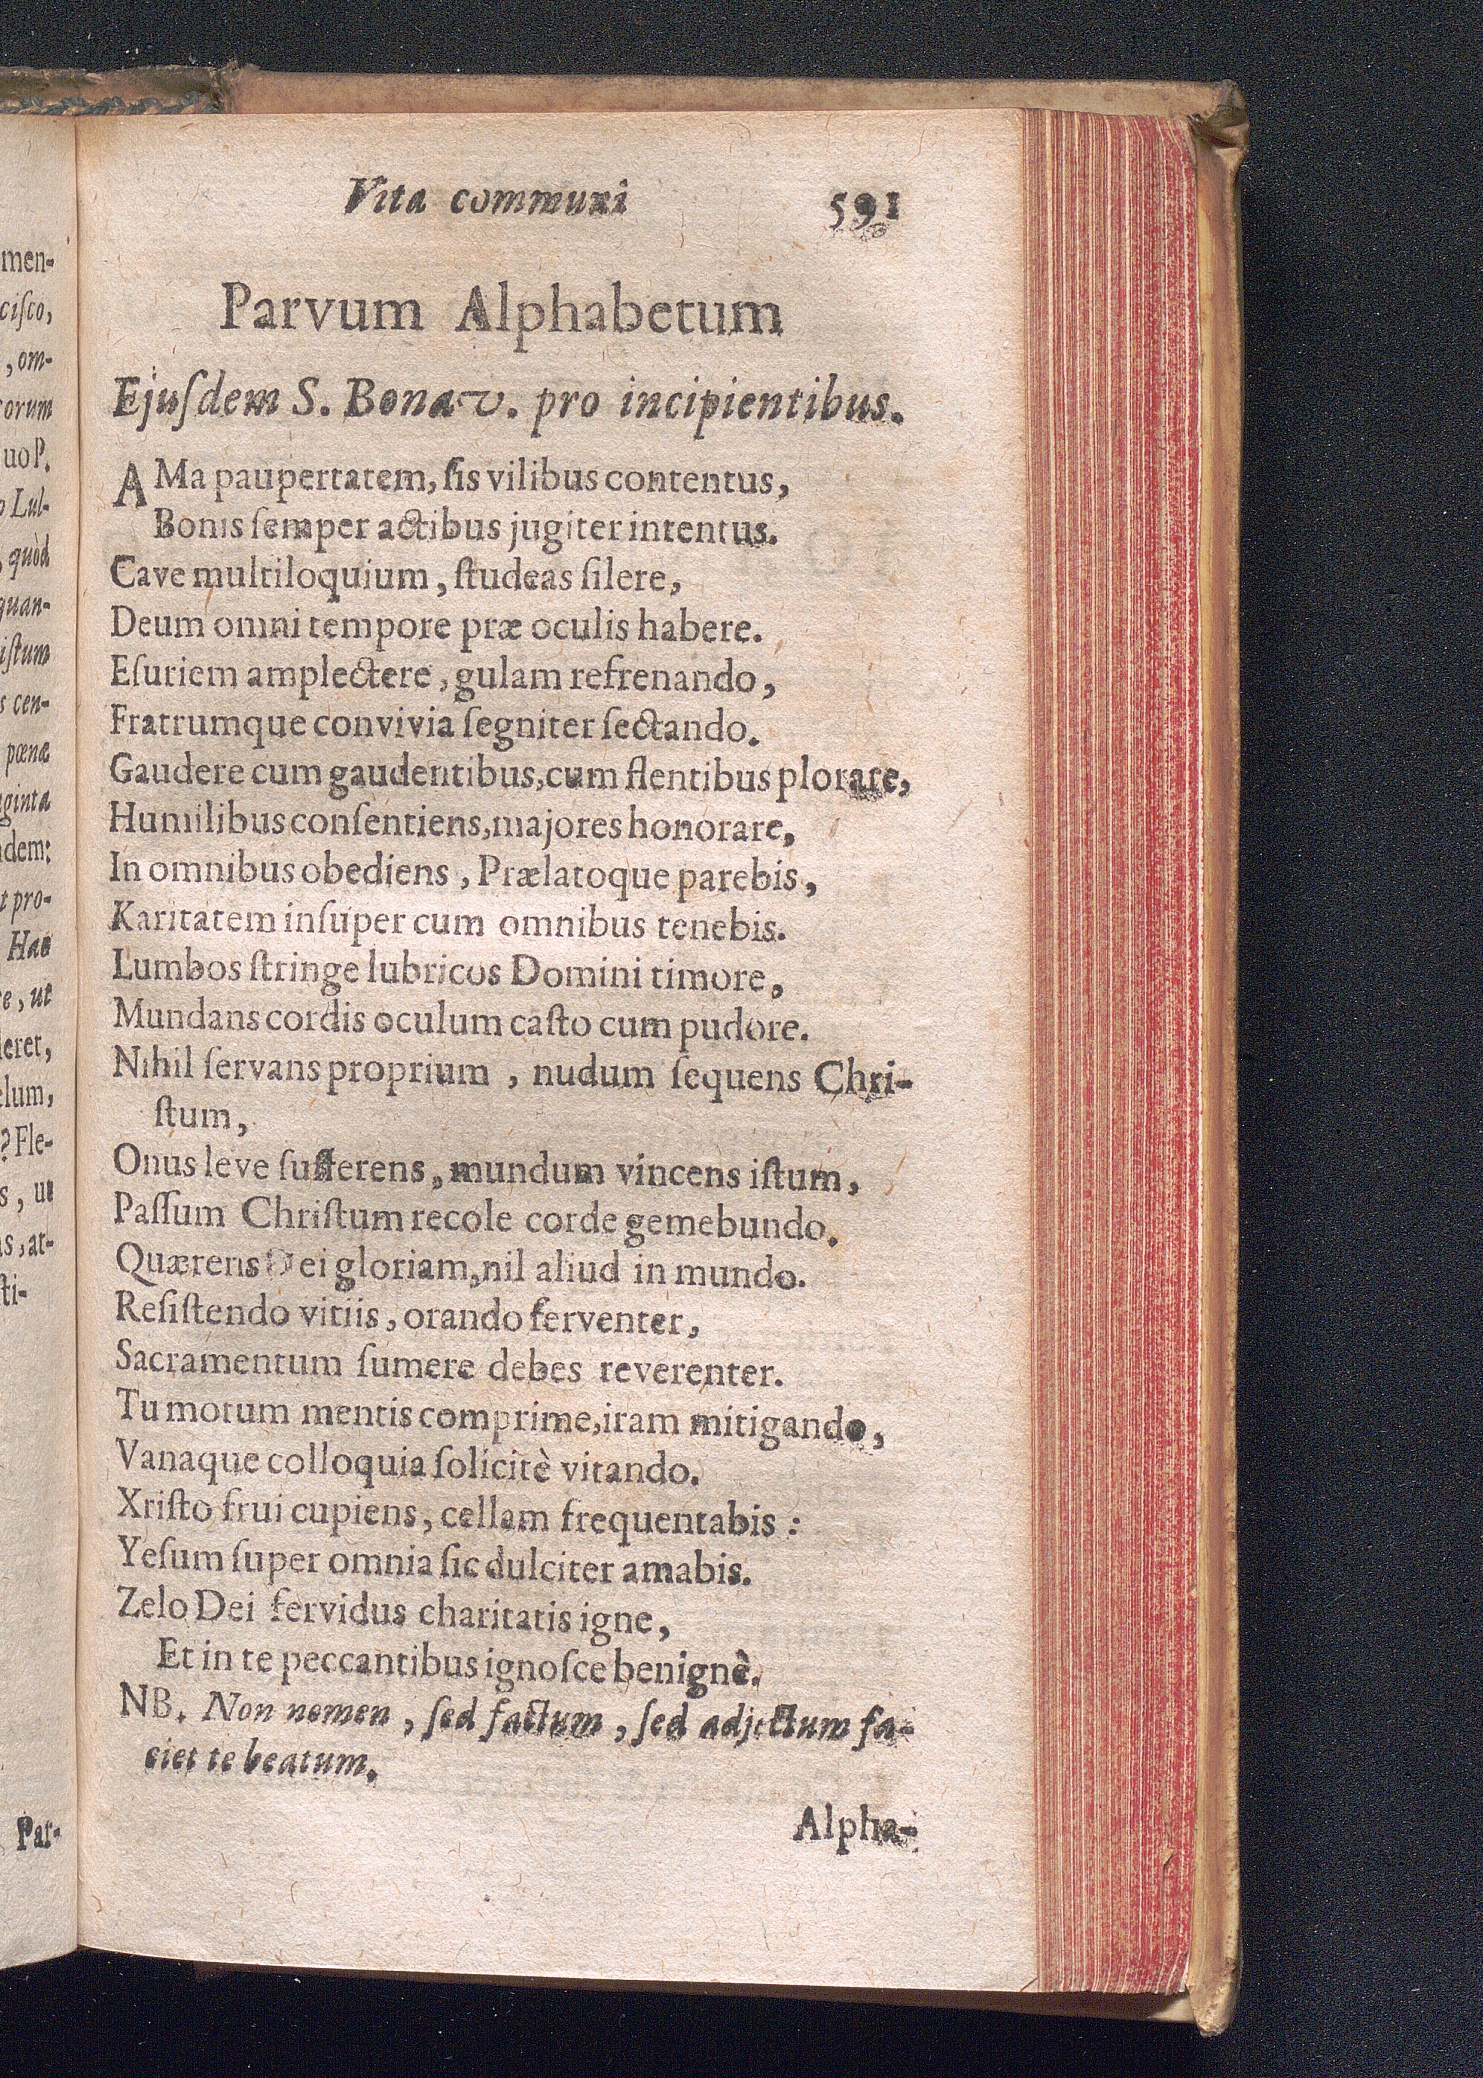 men-
ciſco,
, om-
corum
uo P.
o Lul-
, quòd
quan-
iſtum
s cen-
pœnæ
aginta
adem:
t pro-
Hac
re, ut
leret,
elum,
? Fle-
s, ut
as, at-
ſti-
Par-
Vita communi 591
Parvum Alphabetum
Ejuſdem S. Bonav. pro incipientibus.
AMa paupertatem, ſis vilibus contentus,
Bonis ſemper actibus jugiter intentus.
Cave multiloquium, ſtudeas ſilere,
Deum omni tempore præ oculis habere.
Eſuriem amplectere, gulam refrenando,
Fratrumque convivia ſegniter ſectando.
Gaudere cum gaudentibus, cum flentibus plorare,
Humilibus conſentiens, majores honorare,
In omnibus obediens, Prælatoque parebis,
Karitatem inſuper cum omnibus tenebis.
Lumbos ſtringe lubricos Domini timore,
Mundans cordis oculum caſto cum pudore.
Nihil ſervans proprium, nudum ſequens Chri-
ſtum,
Onus leve ſufferens, mundum vincens iſtum,
Paſſum Chriſtum recole corde gemebundo.
Quærens Dei gloriam, nil aliud in mundo.
Reſiſtendo vitiis, orando ferventer,
Sacramentum ſumere debes reverenter.
Tu motum mentis comprime, iram mitigando,
Vanaque colloquia ſolicitè vitando.
Xriſto frui cupiens, cellam frequentabis:
Yeſum ſuper omnia ſic dulciter amabis.
Zelo Dei fervidus charitatis igne,
Et in te peccantibus ignoſce benignè.
NB. Non nomen, ſed factum, ſed adjectum fa-
ciet te beatum.
Alpha-